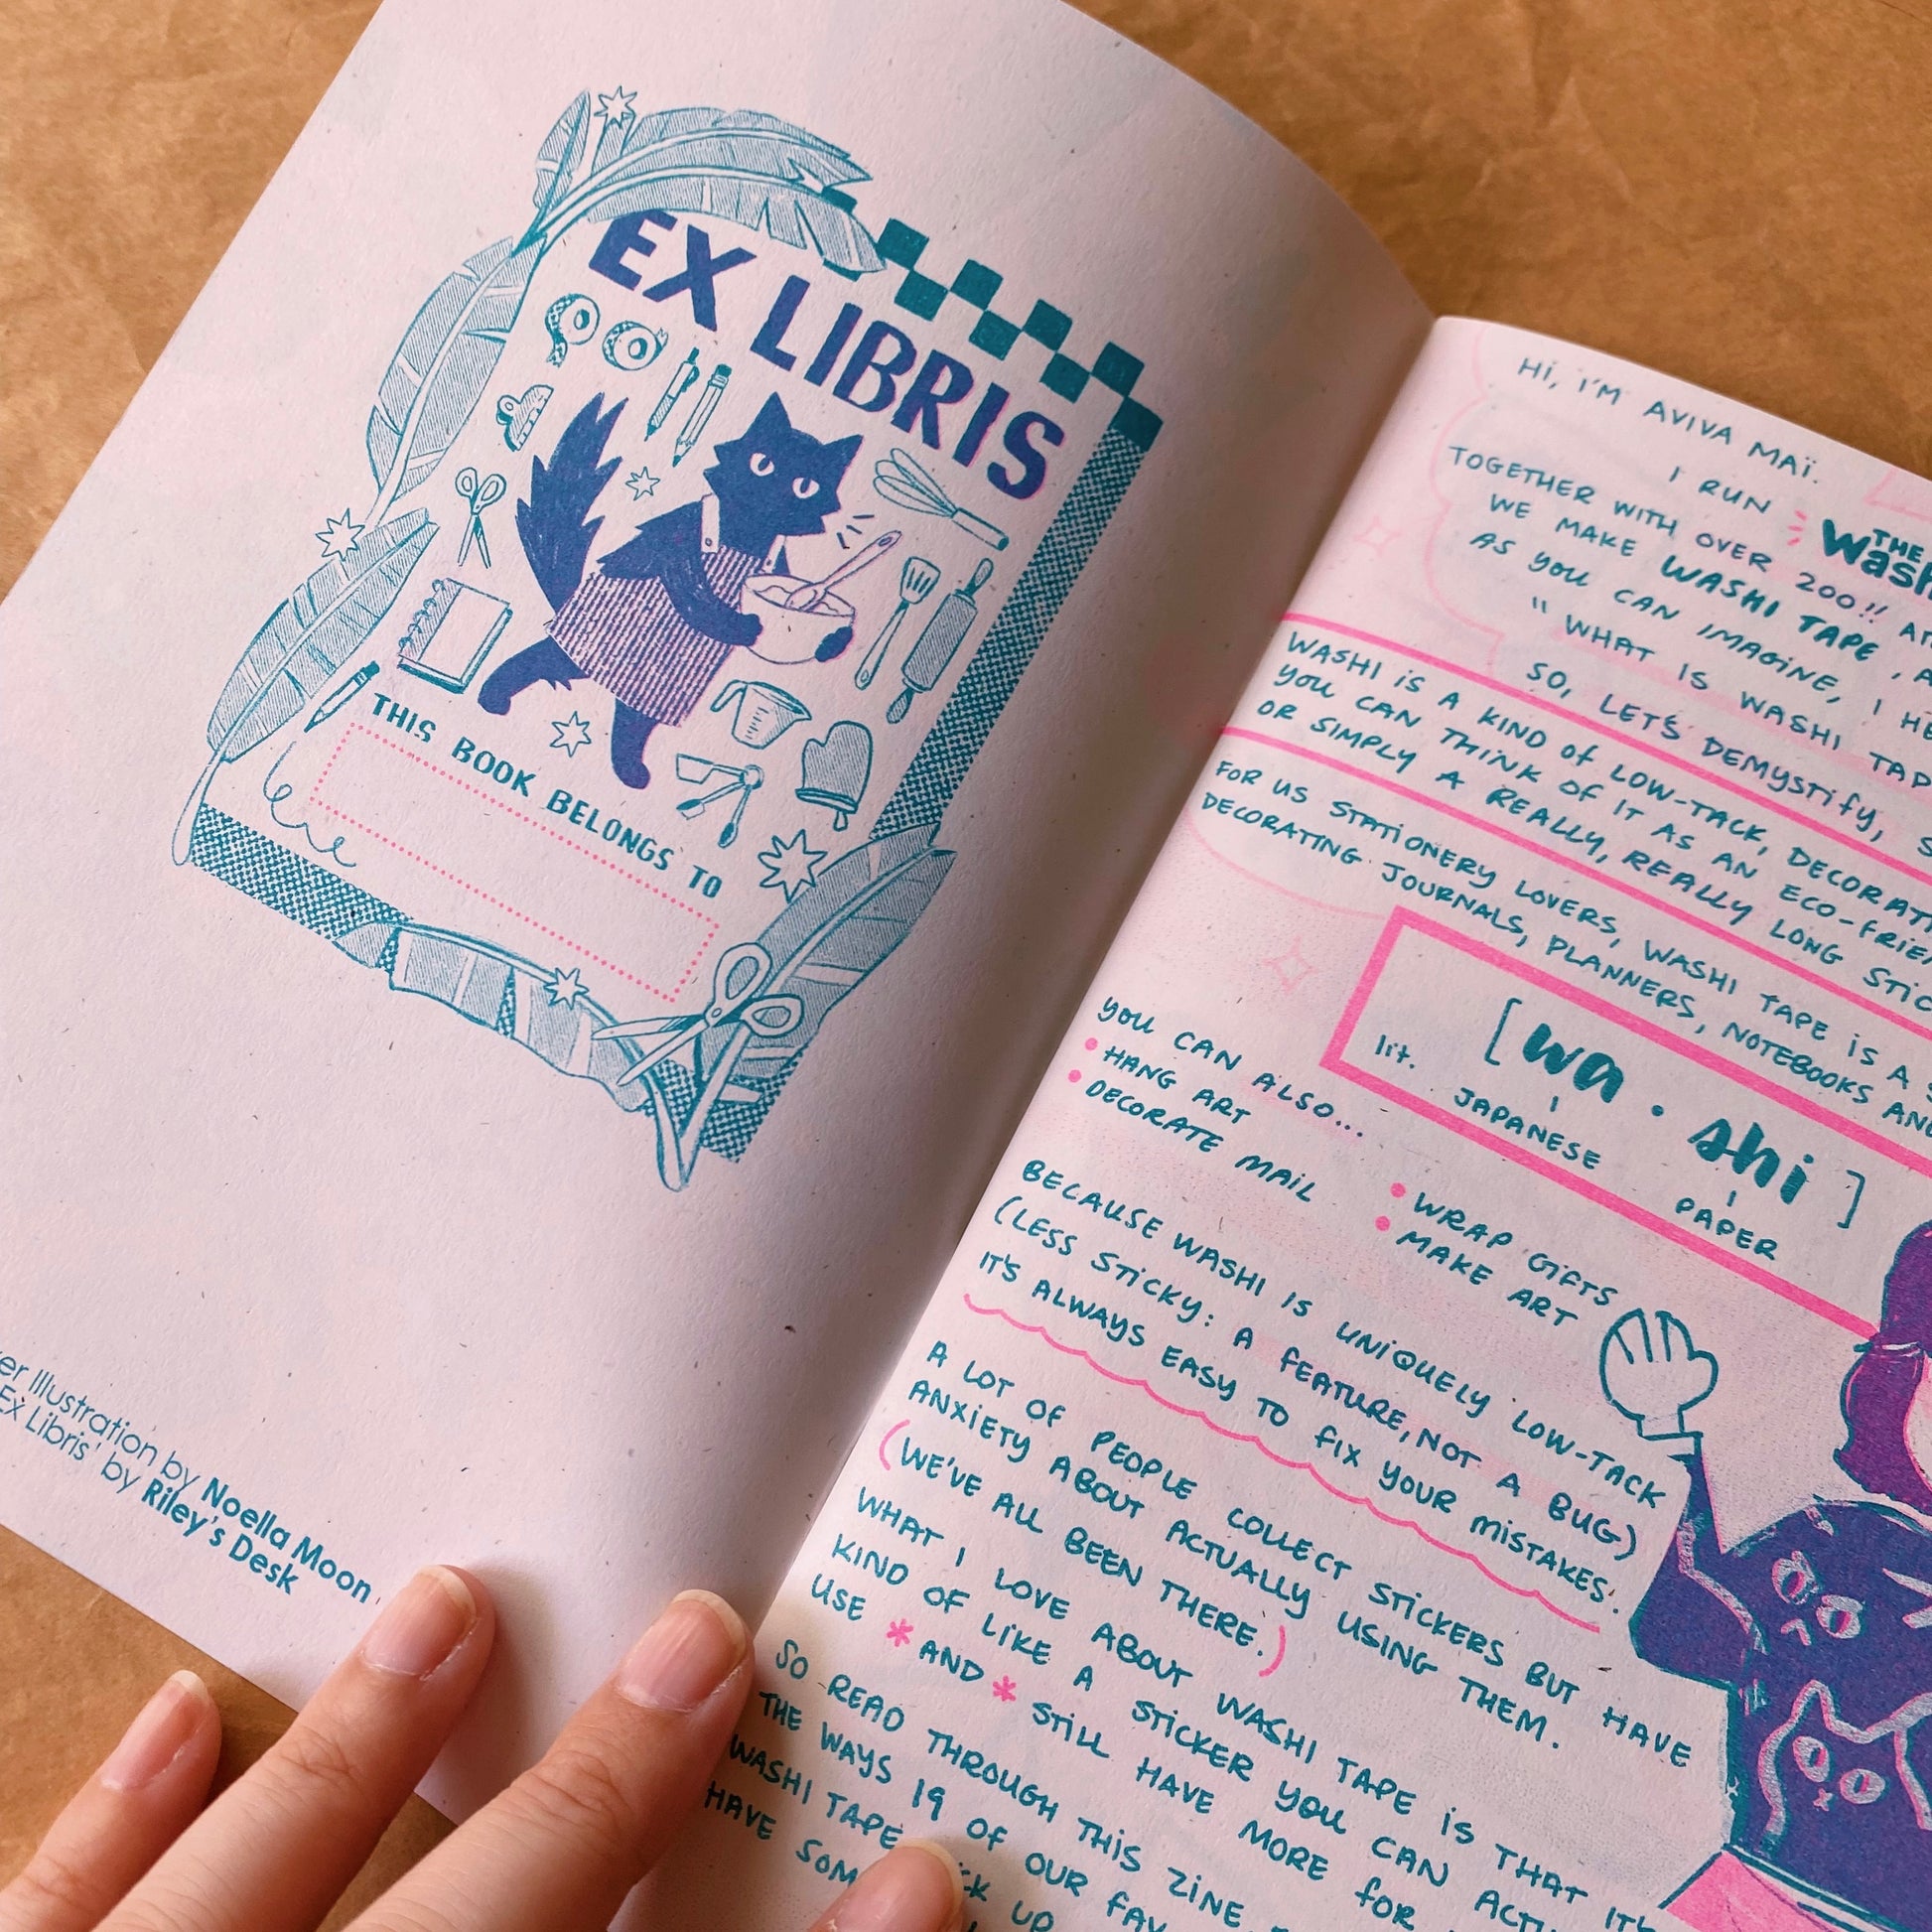 EX LIBRIS
THIS BOOK BELONGS TO
Illustration by Noella Moon
Ex Libris' by Riley's Desk
HI, I'M AVIVA MAÏ.
I RUN THE
TOGETHER WITH OVER 200!!
WE MAKE WASHI TAPE,
AS YOU CAN IMAGINE, I
"WHAT IS WASHI
SO, LET'S DEMYSTIFY,
WASHI IS A KIND OF LOW-TACK,
YOU CAN THINK OF IT AS AN
OR SIMPLY A REALLY, REALLY LONG
FOR US STATIONERY LOVERS, WASHI TAPE IS A
DECORATING JOURNALS, PLANNERS, NOTEBOOKS
[wa · shi]
lit. JAPANESE PAPER
YOU CAN ALSO...
• HANG ART
• DECORATE MAIL
• WRAP GIFTS
• MAKE ART
BECAUSE WASHI IS UNIQUELY LOW-TACK
(LESS STICKY: A FEATURE, NOT A BUG)
IT'S ALWAYS EASY TO FIX YOUR MISTAKES.
A LOT OF PEOPLE COLLECT STICKERS BUT HAVE
ANXIETY ABOUT ACTUALLY USING THEM.
(WE'VE ALL BEEN THERE.)
WHAT I LOVE ABOUT WASHI TAPE IS THAT IT'S
KIND OF LIKE A STICKER YOU CAN
USE * AND * STILL HAVE MORE FOR
SO READ THROUGH THIS ZINE
THE WAYS 19 OF OUR
WASHI TAPE UP
HAVE